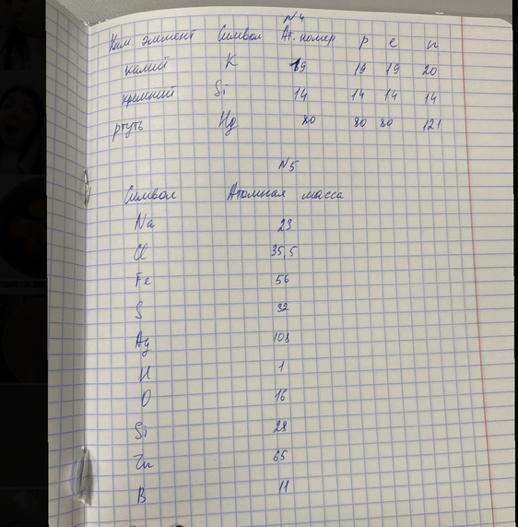 N4
Хим. элемент Символ Ат. номер p e n
калий K 19 19 19 20
кремний Si 14 14 14 14
ртуть Hg 80 80 80 121
N5
Символ Атомная масса
Na 23
Cl 35,5
Fe 56
S 32
Ag 108
H 1
O 16
Si 28
Zn 65
B 11